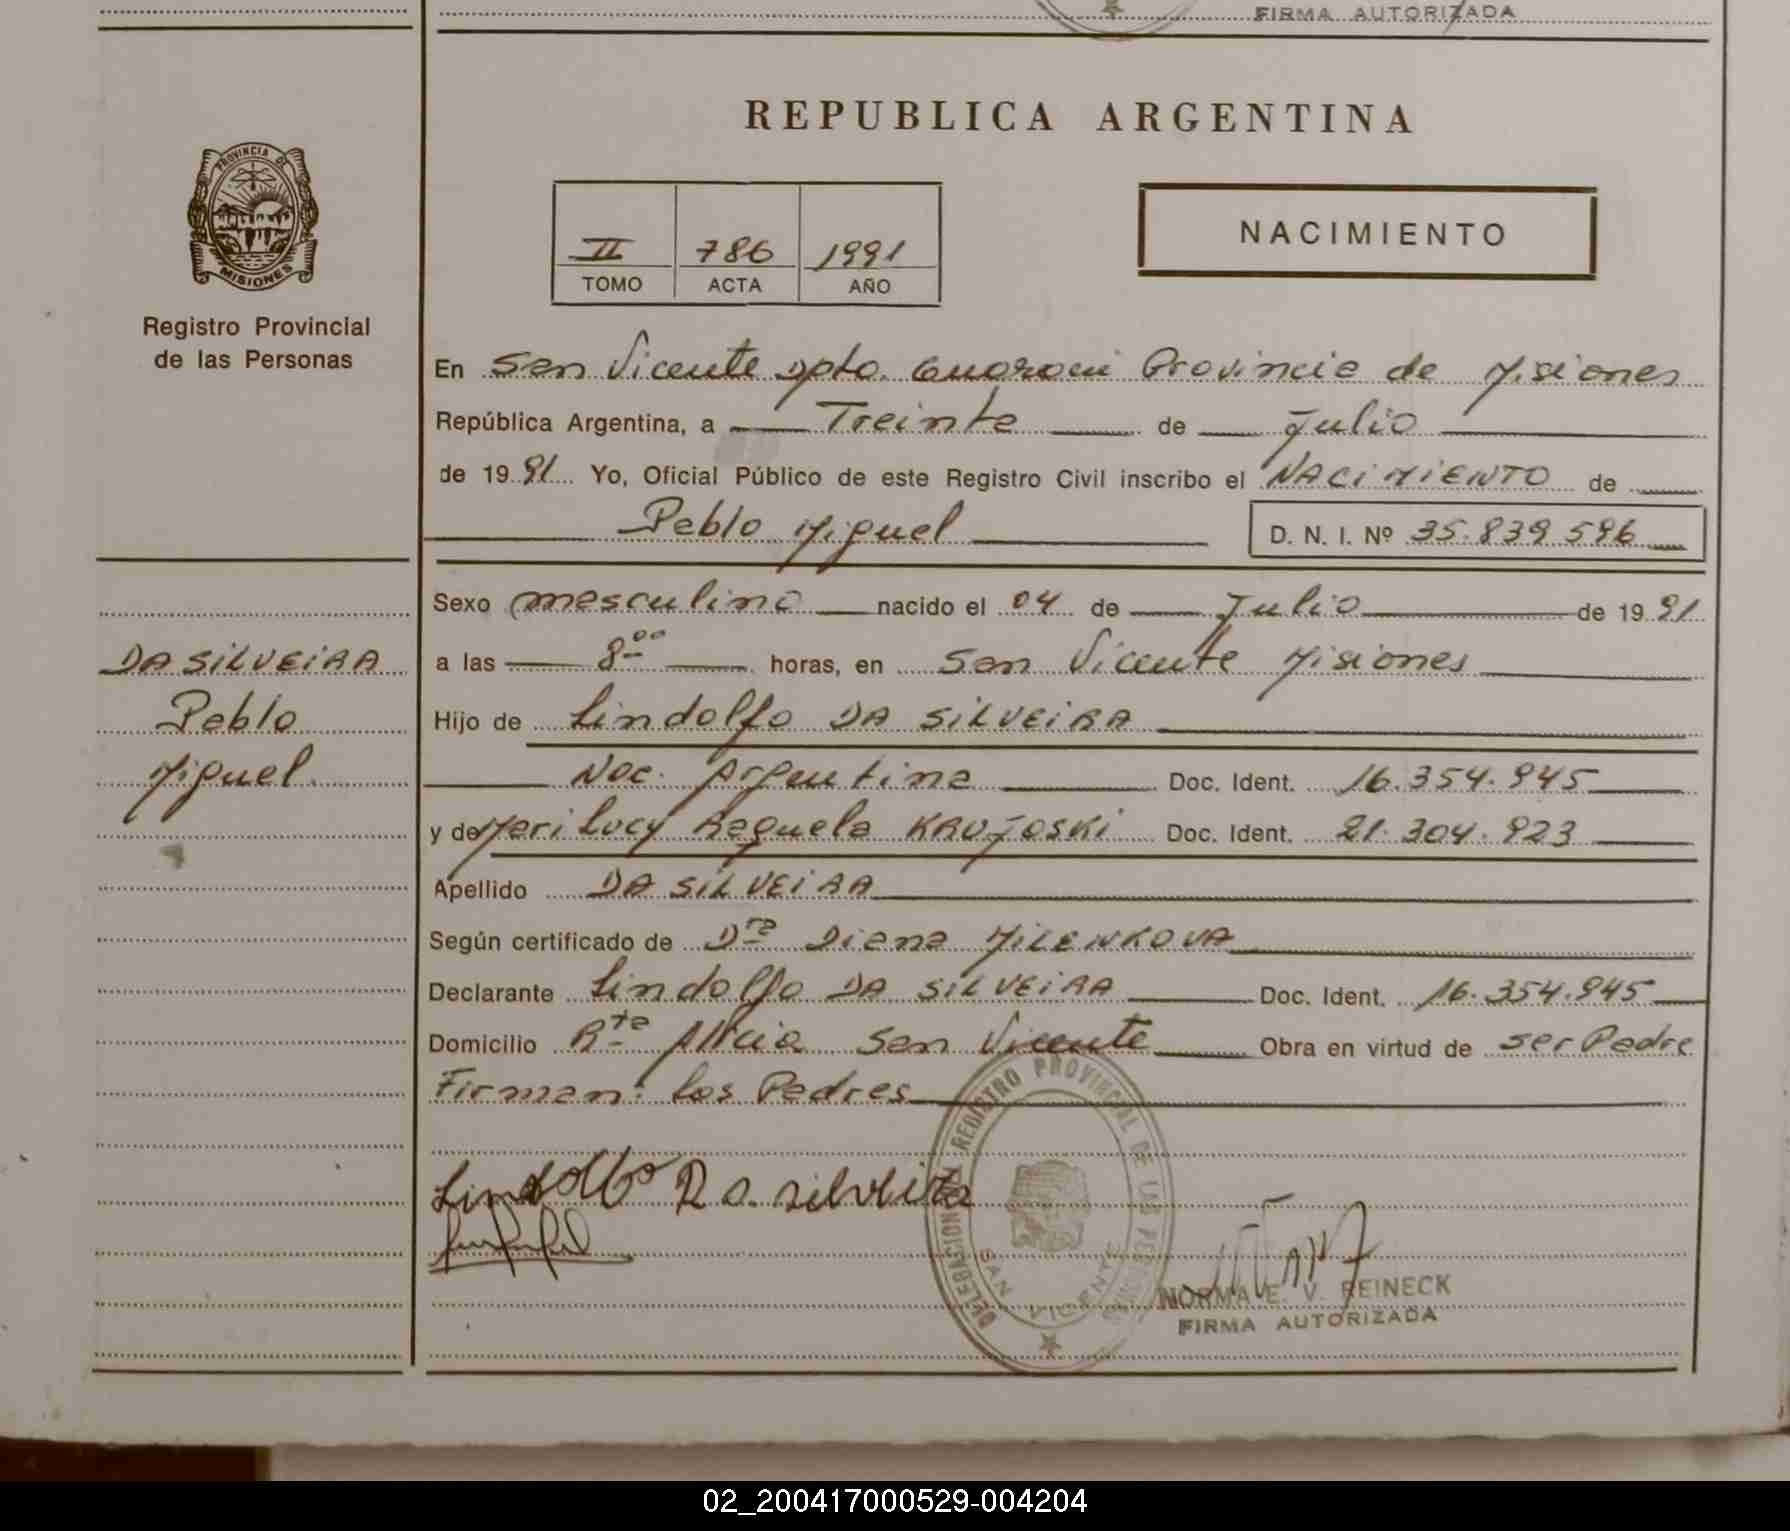 FIRMA AUTORIZADA
REPUBLICA ARGENTINA
PROVINCIA DE
MISIONES
Registro Provincial
de las Personas
II 786 1991
TOMO ACTA AÑO
NACIMIENTO
En San Vicente Dpto. Guarani Provincia de Misiones
República Argentina, a Treinta de Julio
de 1991 Yo, Oficial Público de este Registro Civil inscribo el NACIMIENTO de
Pablo Miguel D. N. I. Nº 35.839.596
Sexo masculino nacido el 04 de Julio de 1991
a las 8 00 horas, en San Vicente Misiones
Hijo de Lindolfo DA SILVEIRA
Nac. Argentina Doc. Ident. 16.354.945
y de Mari Lucy Raquela KRUJOSKI Doc. Ident. 21.304.923
Apellido DA SILVEIRA
Según certificado de Dra Diana MILENKOVA
Declarante Lindolfo DA SILVEIRA Doc. Ident. 16.354.945
Domicilio Rta Alicia San Vicente Obra en virtud de ser Padre
Firman: los Padres
DA SILVEIRA
Pablo
Miguel
Lindolfo D a. silveira
DELEGACION REGISTRO PROVINCIAL DE LAS PERSONAS
SAN VICENTE
NORMA E. V. REINECK
FIRMA AUTORIZADA
02_200417000529-004204